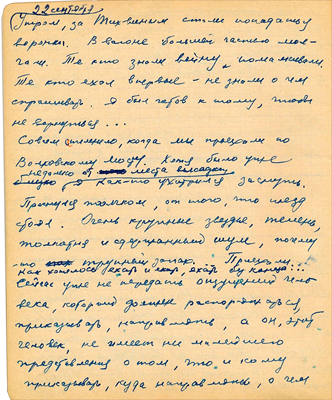 22 сентября
Утром, за Тихвином стали попадаться
воронки. В вагоне большей частью мол-
чат. Те кто знали войну, помалкивали.
Те кто ехал впервые - не знали о чем
спрашивать. Я был готов к тому, чтобы
не вернуться...
Совсем стемнело, когда мы проехали по
Волховскому мосту. Хотя было уже
недалеко от места высадки
я как-то ухитрился заснуть.
Проснулся толчком, от того, что поезд
стоял. Очень крупные звезды, темень,
толкотня и сдержанный шум, почему
-то трупный запах. Приехали...
Как хотелось ехать и ехать, ехать бы конца!...
Сейчас уже не передать ощущений чело
века, который должен распоряжаться,
приказывать, направлять, а он, этот
человек, не имеет ни малейшего
представления о том, что и кому
приказывать, куда направлять, о чем